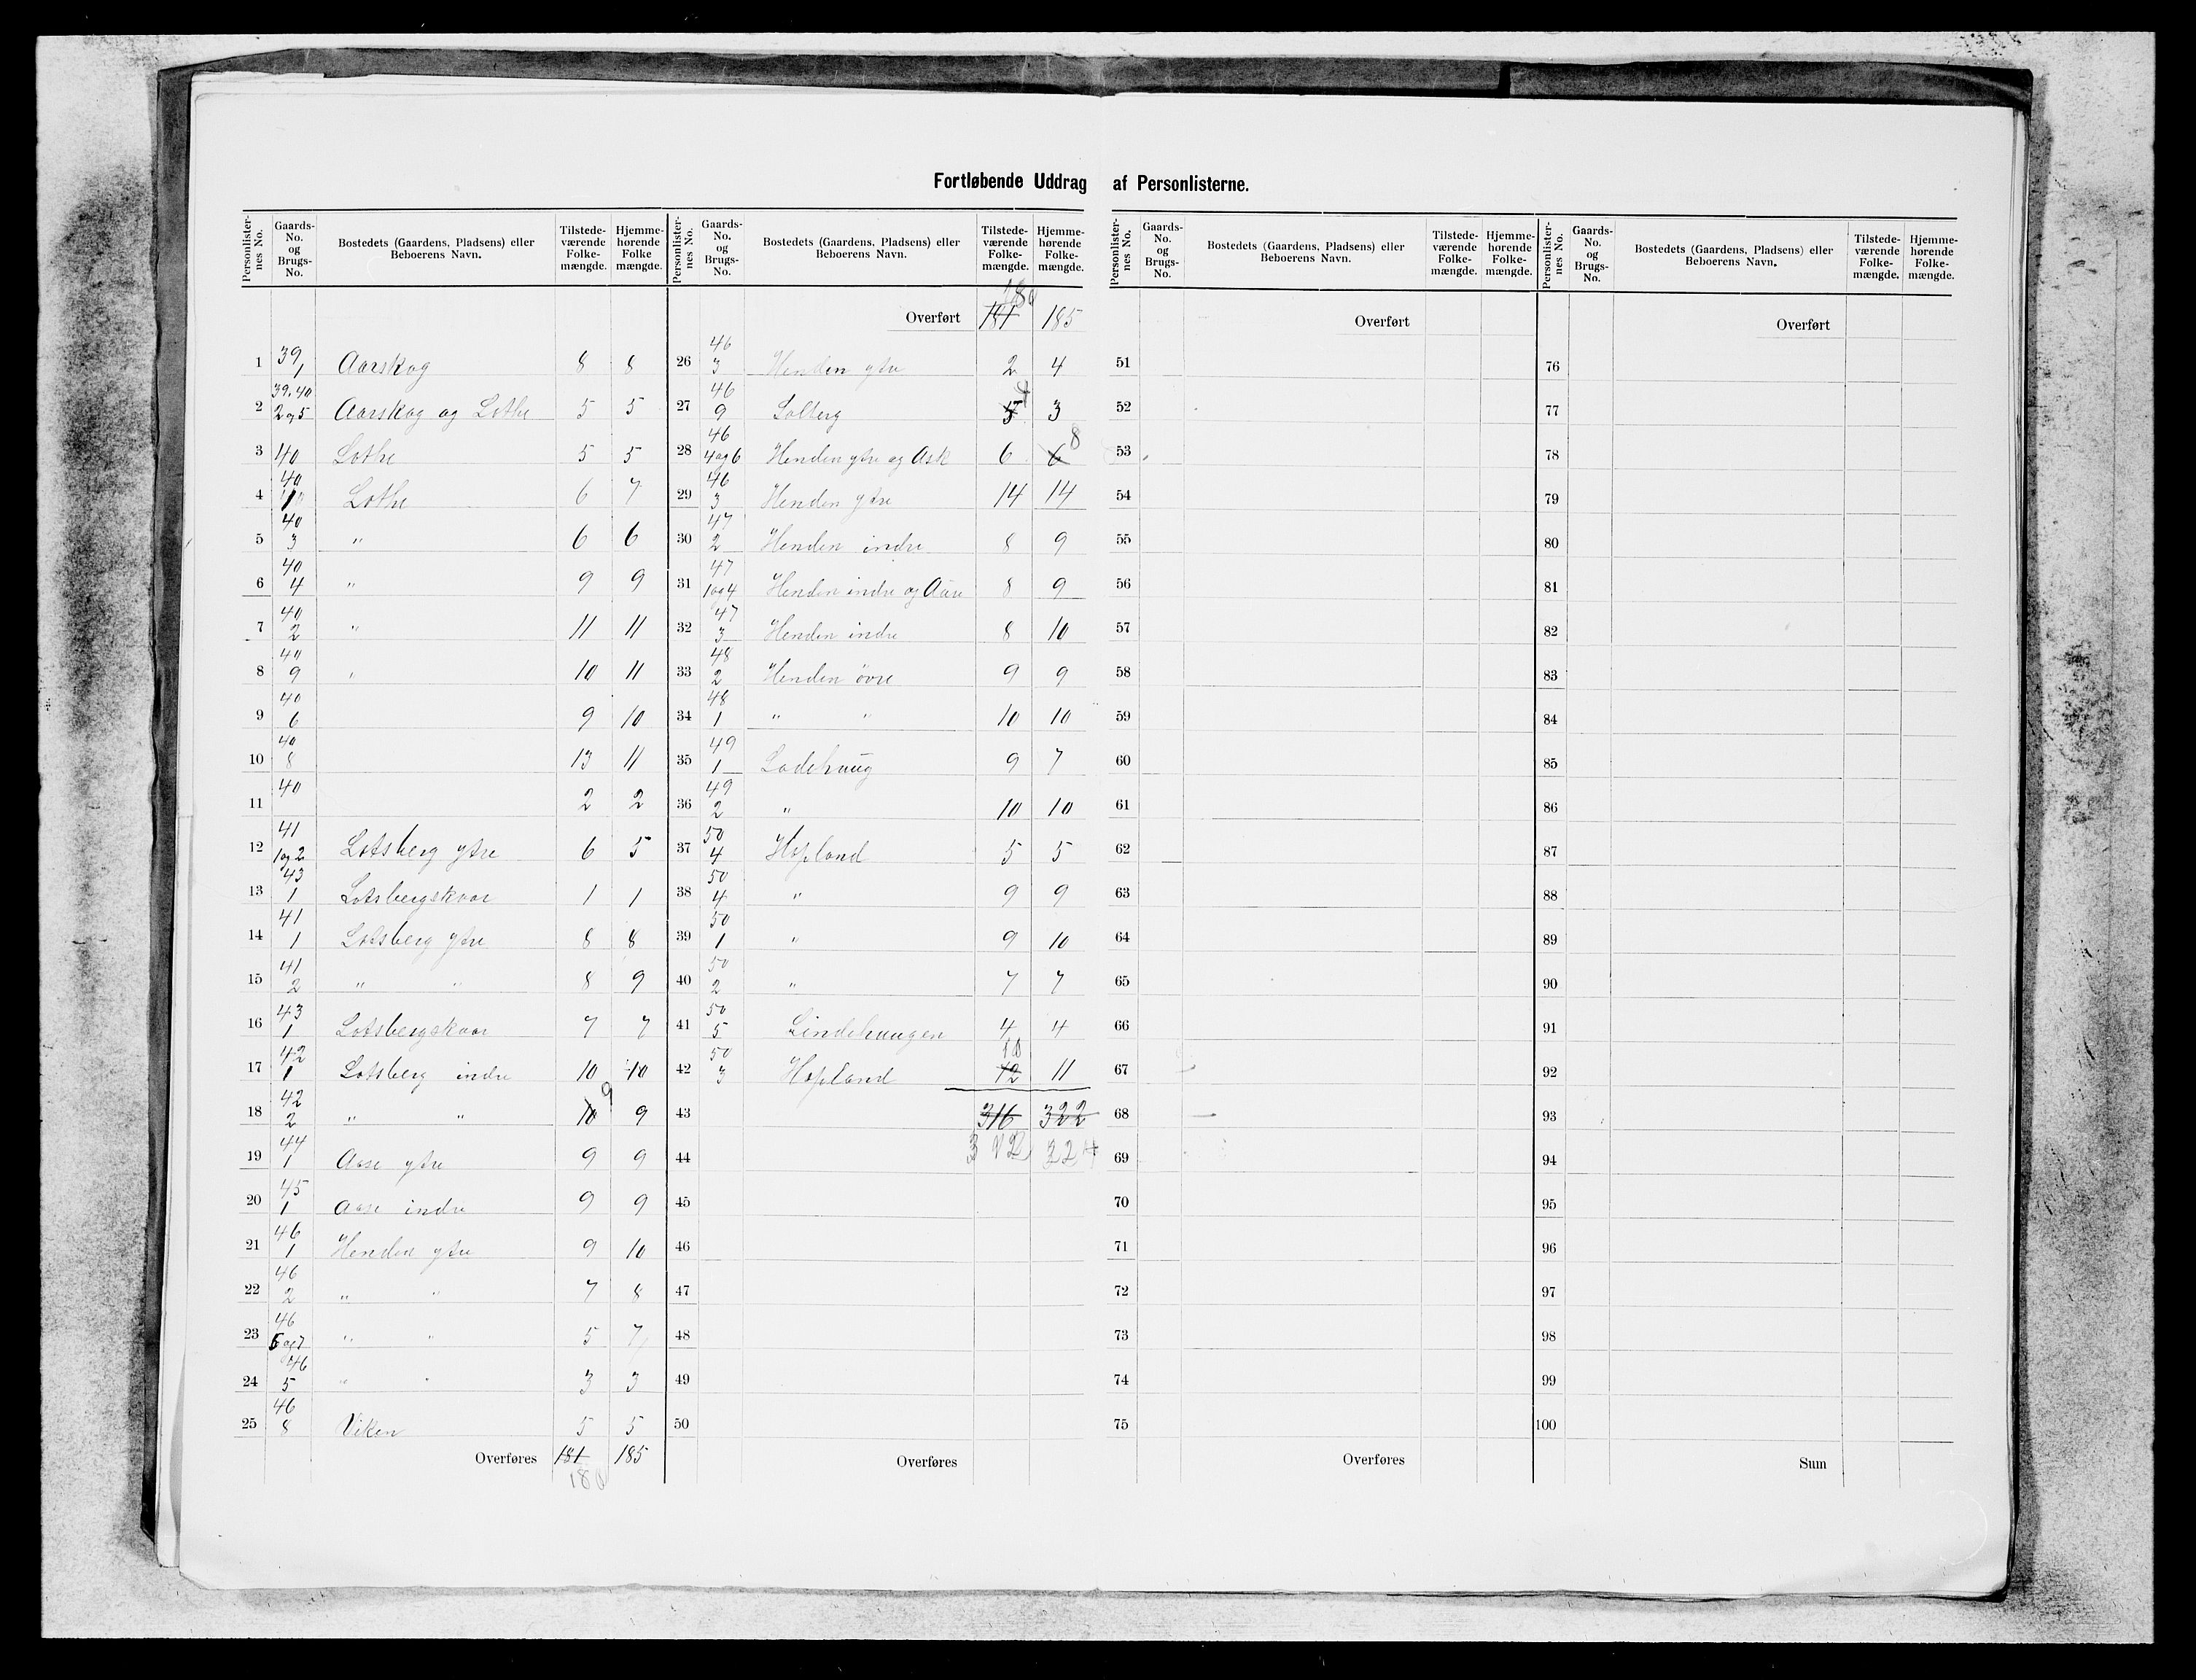 Fortløbende Uddrag af Personlisterne.
Personlister-nes No. | Gaards-No. og Brugs-No. | Bostedets (Gaardens, Pladsens) eller Beboerens Navn. | Tilstede-værende Folke-mængde. | Hjemme-hørende Folke mængde.
1 | 39 1 | Aarskog | 8 | 8
2 | 39.40 2 og 5 | Aarskog og Lothe | 5 | 5
3 | 40 | Lothe | 5 | 5
4 | 40 | Lothe | 6 | 7
5 | 40 3 | " | 6 | 6
6 | 40 4 | " | 9 | 9
7 | 40 2 | " | 11 | 11
8 | 40 9 | " | 10 | 11
9 | 40 6 | 9 | 10
10 | 40 8 | 13 | 11
11 | 40 | 2 | 2
12 | 41 1 og 2 | Lotsberg ytre | 6 | 5
13 | 43 1 | Lotsbergskaar | 1 | 1
14 | 41 1 | Lotsberg ytre | 8 | 8
15 | 41 2 | " " | 8 | 9
16 | 43 1 | Lotsbergskaar | 7 | 7
17 | 42 1 | Lotsberg indre | 10 | 10
18 | 42 2 | " " | 10 9 | 9
19 | 44 1 | Aase ytre | 9 | 9
20 | 45 1 | Aase indre | 9 | 9
21 | 46 1 | Henden ytre | 9 | 10
22 | 46 2 | " " | 7 | 8
23 | 46 6 og 7 | " " | 5 | 7
24 | 46 5 | " " | 3 | 3
25 | 46 8 | Viken | 5 | 5
Overføres | 181 | 185
180
Personlister-nes No. | Gaards-No. og Brugs-No. | Bostedets (Gaardens, Pladsens) eller Beboerens Navn. | Tilstede-værende Folke-mængde. | Hjemme-hørende Folke-mængde.
180
Overført | 181 | 185
26 | 46 3 | Henden ytre | 2 | 4
27 | 46 9 | Solberg | 5 4 | 3
28 | 46 4 og 6 | Henden ytre og Ask | 6 | 6 8
29 | 46 3 | Henden ytre | 14 | 14
30 | 47 2 | Henden indre | 8 | 9
31 | 47 1 og 4 | Henden indre og Aare | 8 | 9
32 | 47 3 | Henden indre | 8 | 10
33 | 48 2 | Henden övre | 9 | 9
34 | 48 1 | " " | 10 | 10
35 | 49 1 | Ladehaug | 9 | 7
36 | 49 2 | " | 10 | 10
37 | 50 4 | Hopland | 5 | 5
38 | 50 4 | " | 9 | 9
39 | 50 1 | " | 9 | 10
40 | 50 2 | " | 7 | 7
41 | 50 5 | Lindehaugen | 4 | 4
42 | 50 3 | Hopland | 12 10 | 11
43 | 316 | 322
44 | 312 | 324
45
46
47
48
49
50
Overføres
Personlister-nes No. | Gaards-No. og Brugs-No. | Bostedets (Gaardens, Pladsens) eller Beboerens Navn. | Tilstede-værende Folke-mængde. | Hjemme-hørende Folke-mængde.
Overført
51
52
53
54
55
56
57
58
59
60
61
62
63
64
65
66
67
68
69
70
71
72
73
74
75
Overføres
Personlister-nes No. | Gaards-No. og Brugs-No. | Bostedets (Gaardens, Pladsens) eller Beboerens Navn. | Tilstede-værende Folke-mængde. | Hjemme-hørende Folke-mængde.
Overført
76
77
78
79
80
81
82
83
84
85
86
87
88
89
90
91
92
93
94
95
96
97
98
99
100
Sum